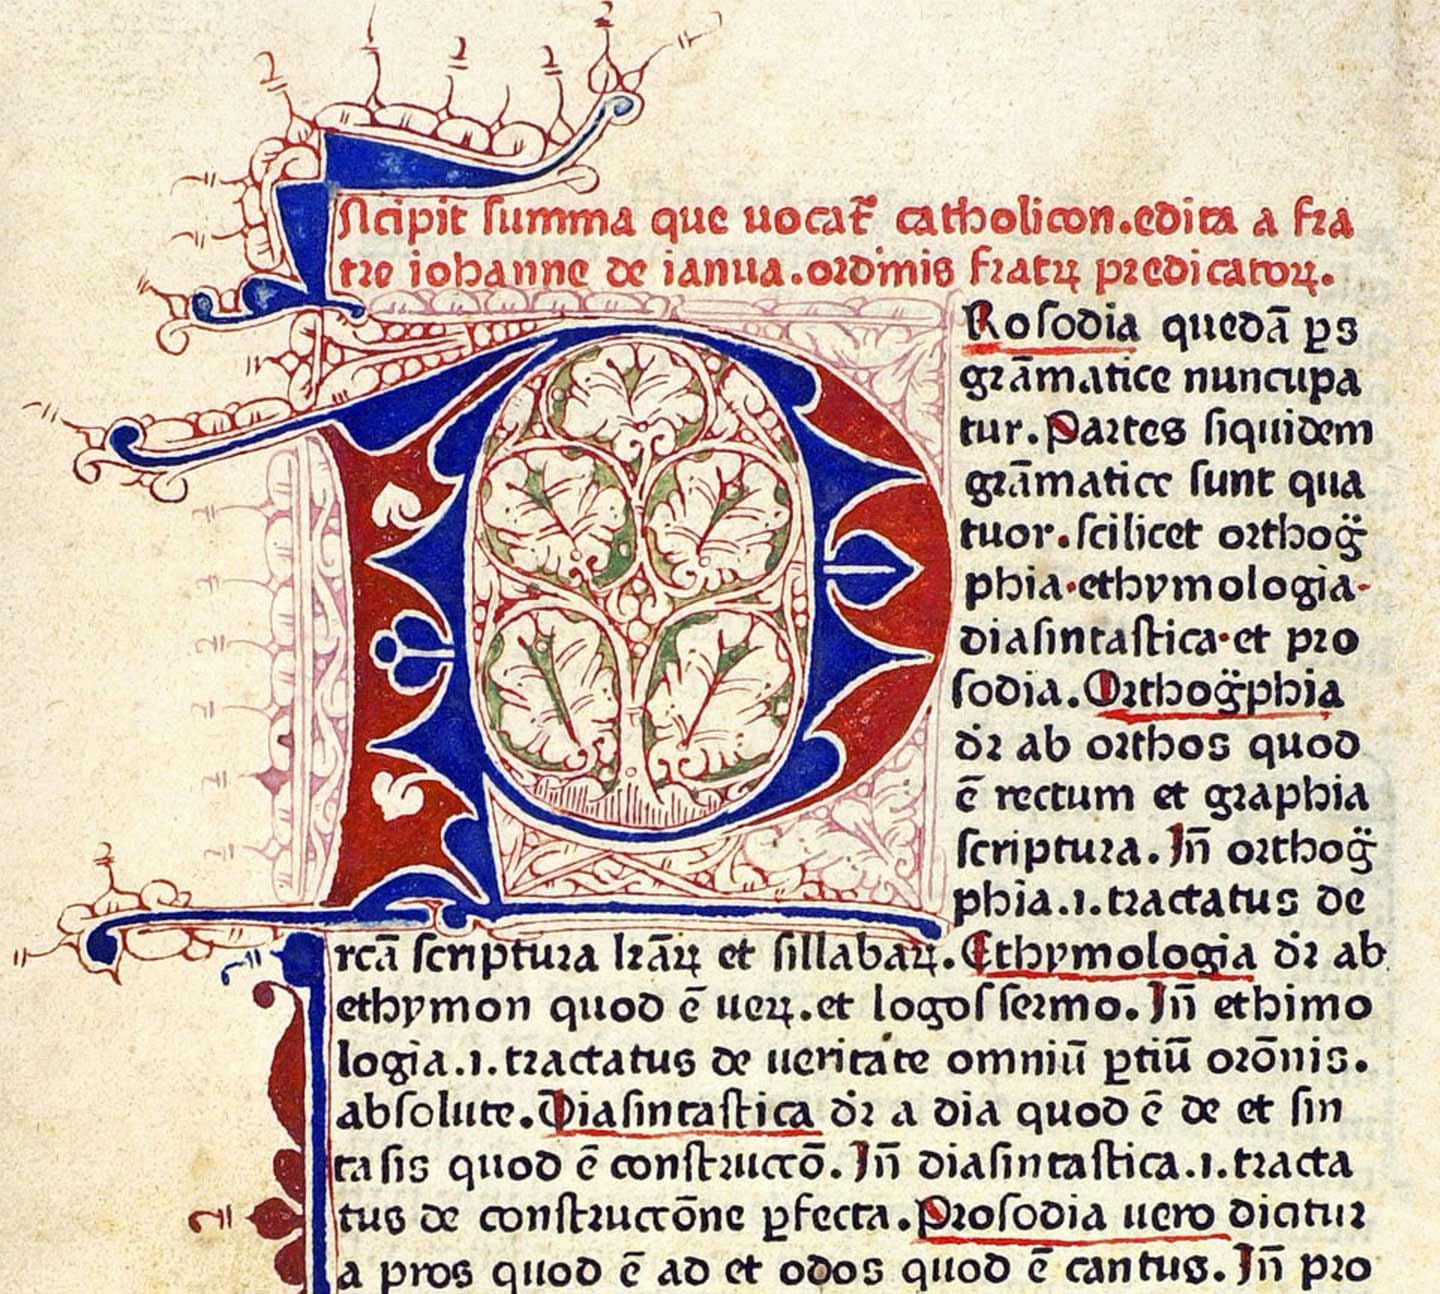 Incipit summa que uocať catholicon.edita a fra
tre iohanne de ianua.ordinis fratꝝ predicatoꝝ.
PRosodia quedā ꝑs
grāmatice nuncupa
tur.Partes siquidem
grāmatice sunt qua
tuor.scilicet orthog̈
phia.ethymologia.
diasintastica.et pro
sodia.Orthog̈phia
dr̄ ab orthos quod
ē rectum et graphia
scriptura.Jn̄ orthog̈
phia.i.tractatus de
rcā scriptura lr̄aꝝ et sillabaꝝ.Ethymologia dr̄ ab
ethymon quod ē ueꝝ.et logos sermo.Jn̄ ethimo
logia.i.tractatus de ueritate omniū ꝑtiū orōnis.
absolute.Diasintastica dr̄ a dia quod ē de et sin
tasis quod ē constructō.Jn̄ diasintastica.i.tracta
tus de constructōne ꝑfecta.Prosodia uero dicitur
a pros quod ē ad et odos quod ē cantus.Jn̄ pro